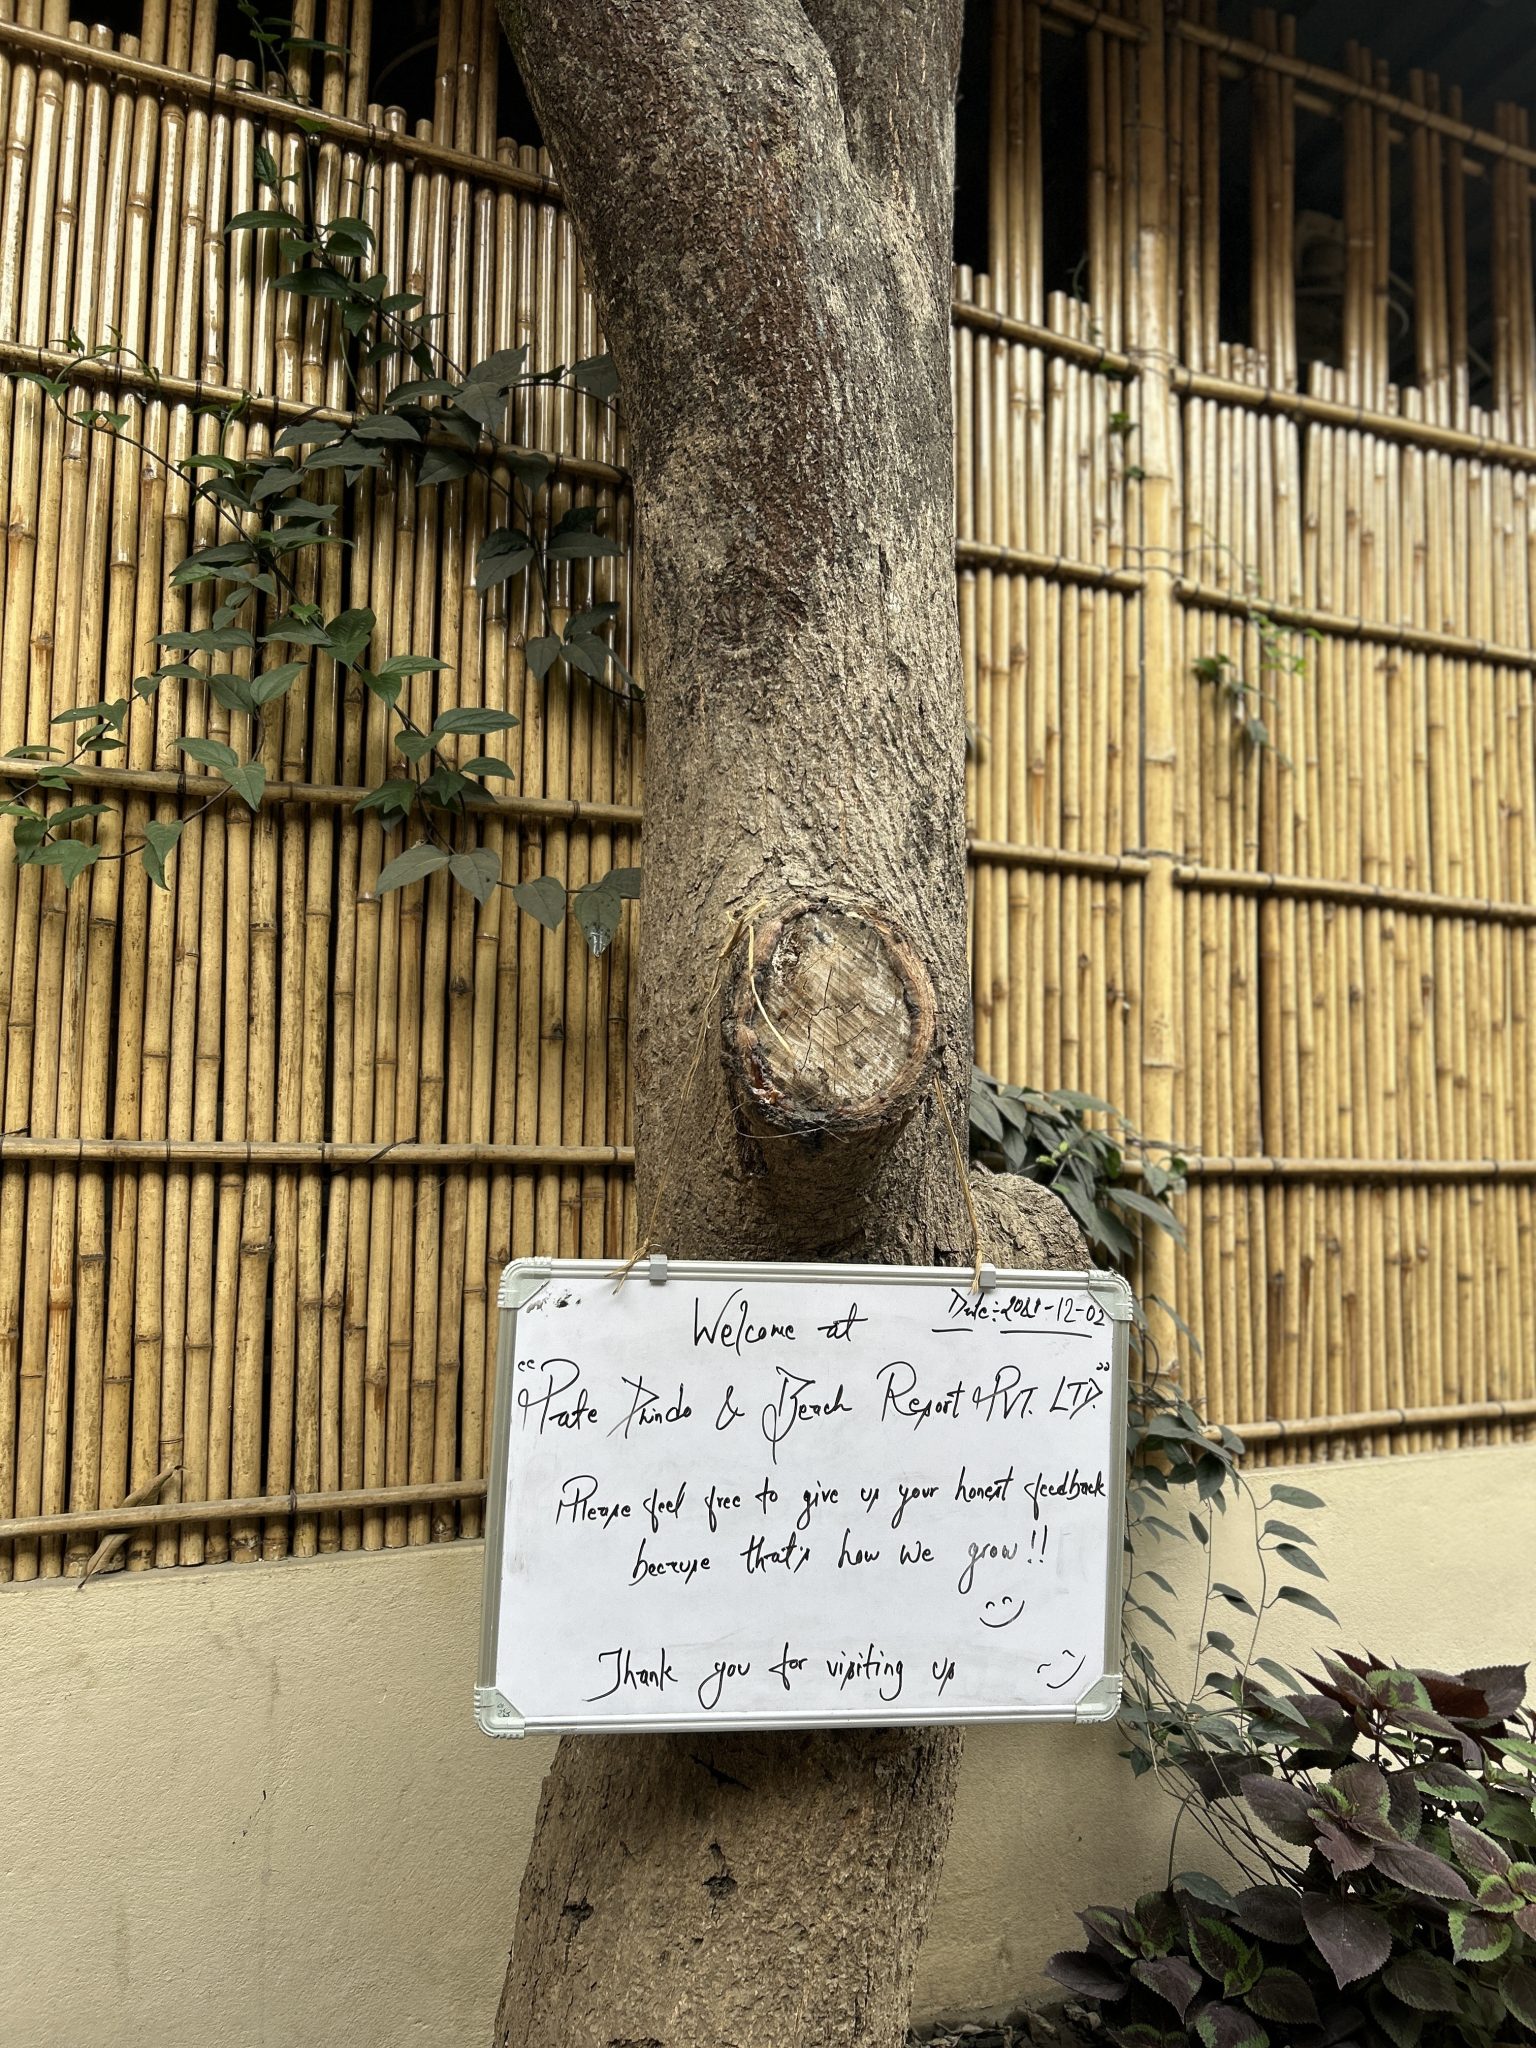 Welcome at
Date:- 2081-12-02
"Pate Dindo & Beach Resort PVT. LTD."
Please feel free to give us your honest feedback
because that's how we grow!!
Thank you for visiting us